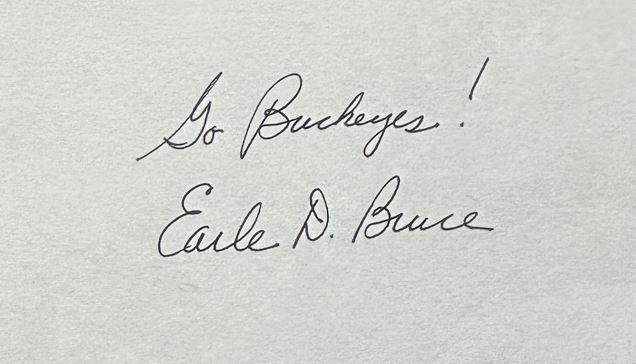 Go Buckeyes!
Earle D. Bruce